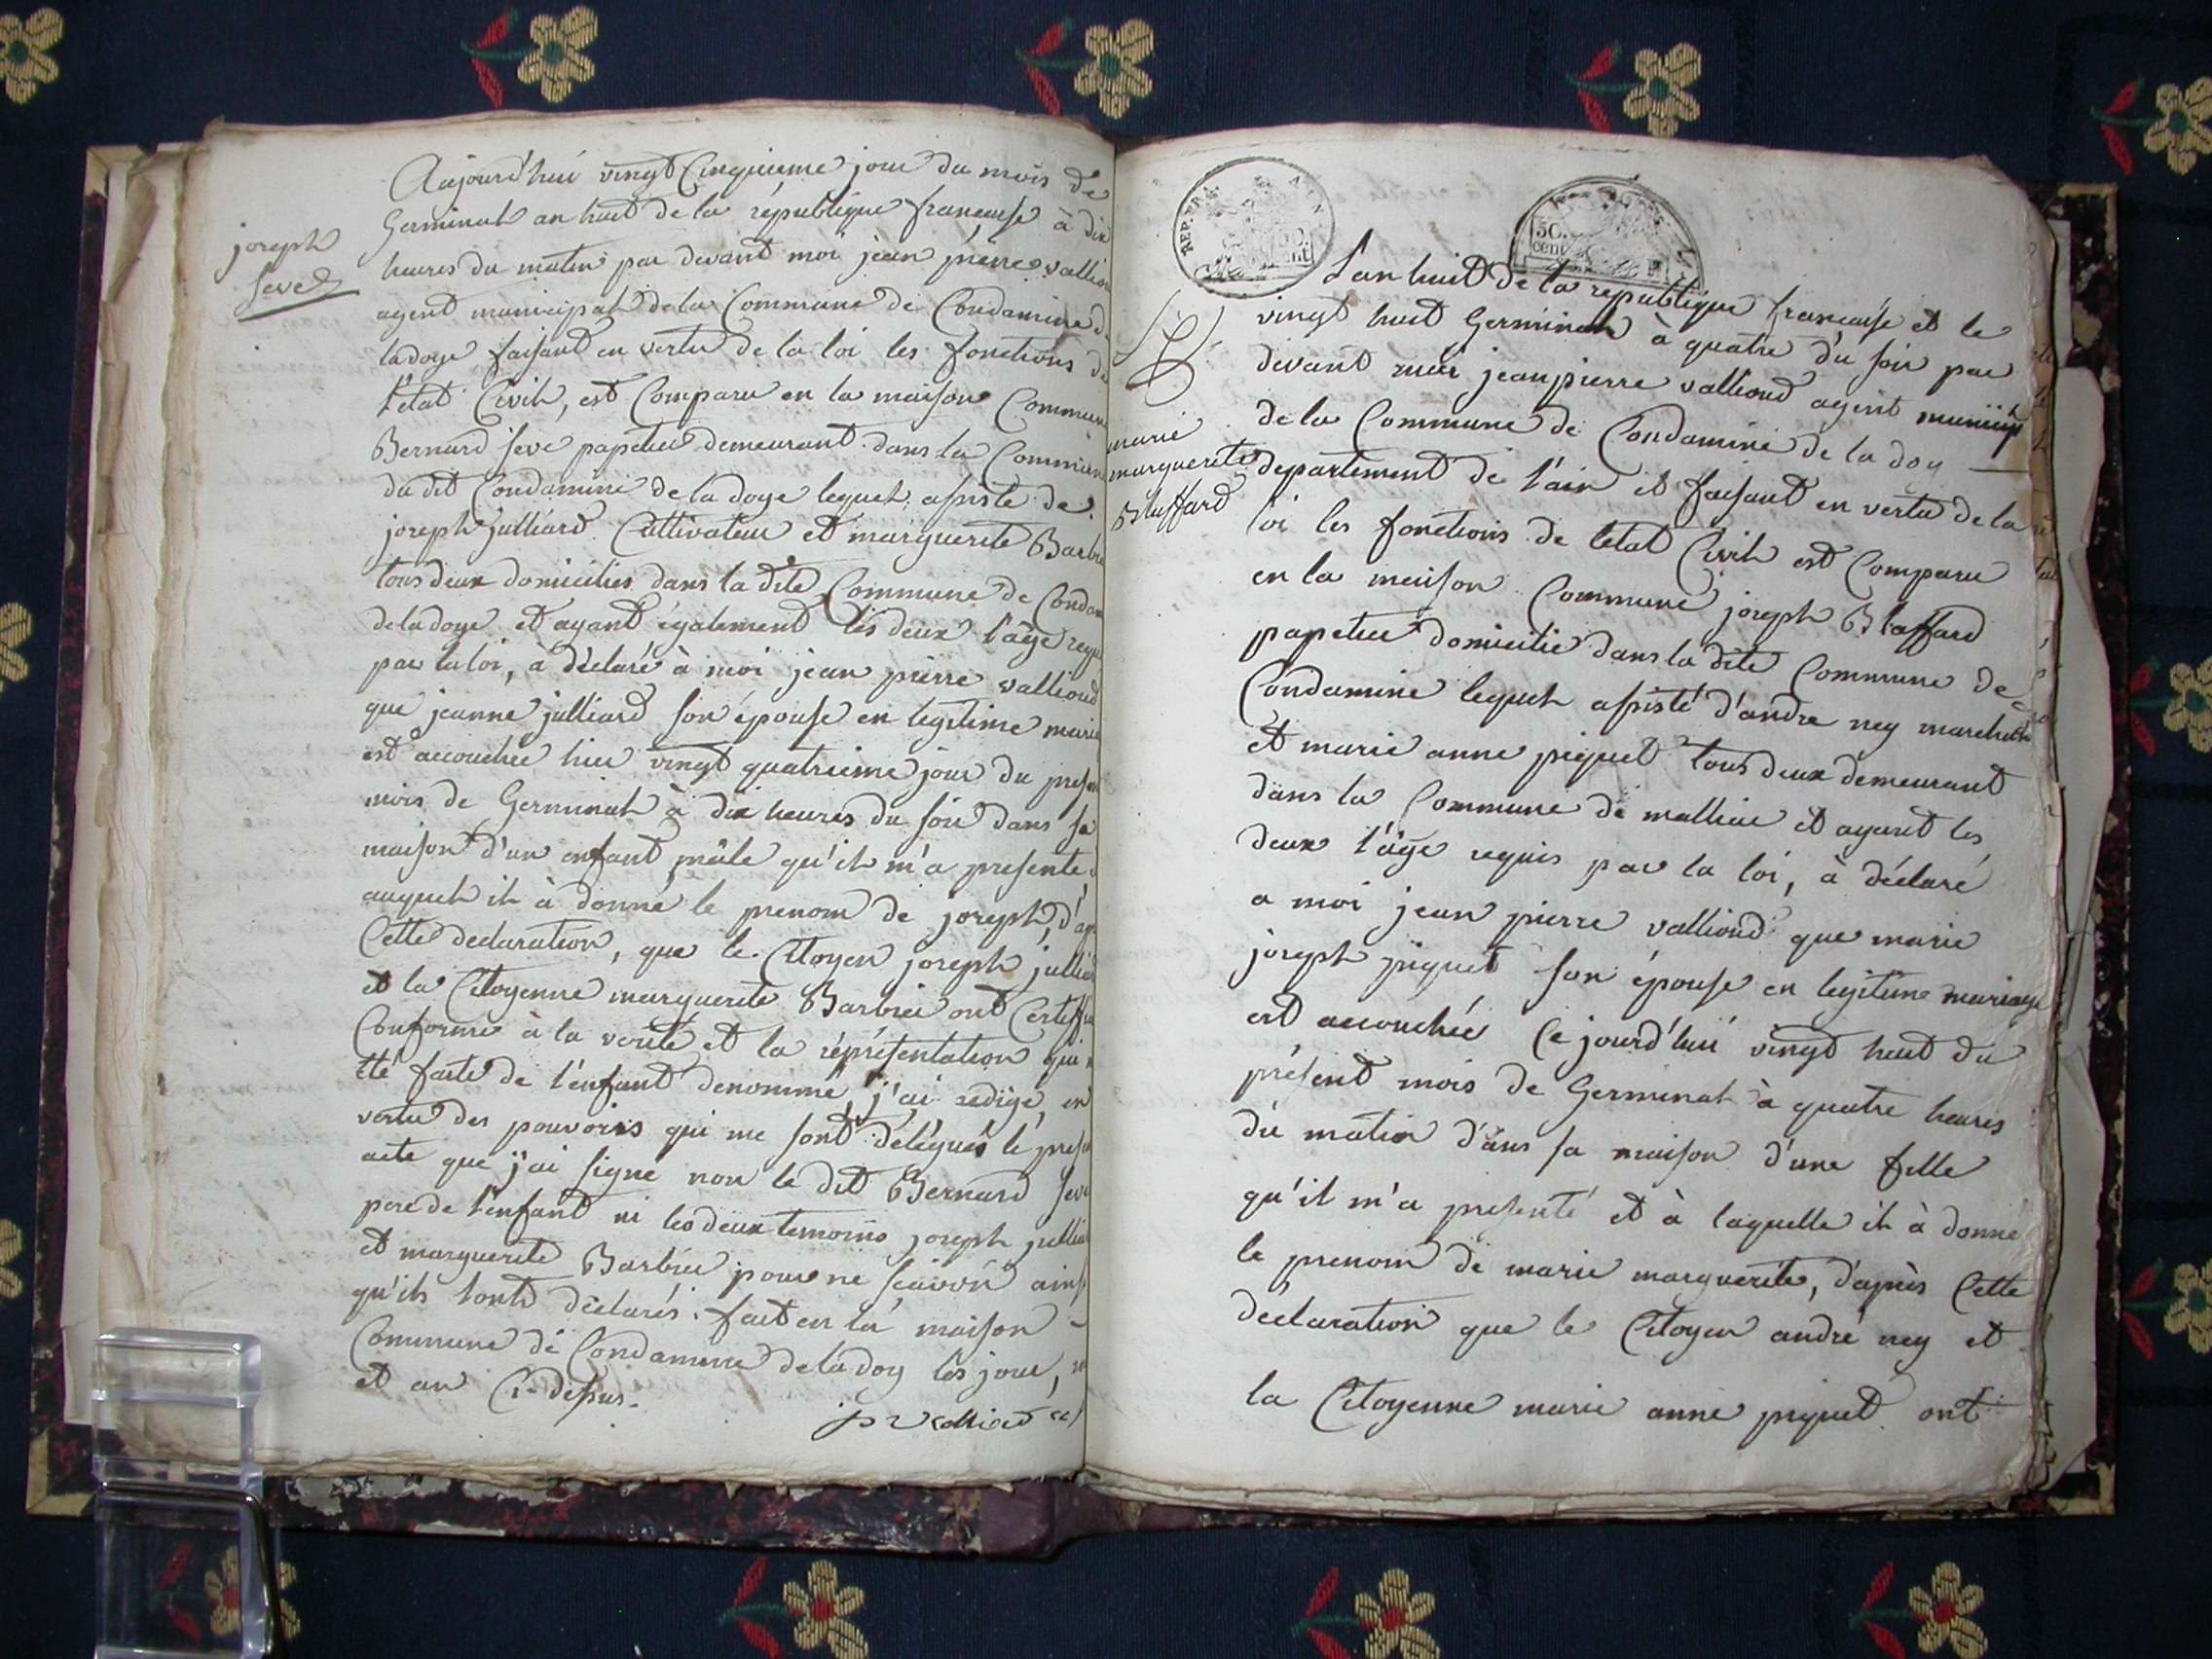 joseph
seve
Aujourd'hui vingt Cinquieme jour du mois de
Germinal an huit de la république francaise à dix
heures du matin par devant moi jean pierre vallio
agent municipal de la Commune de Condamine d
ladoye faisant en vertu de la loi les fonctions d
L'etat Civil, est Comparu en la maison Commun
Bernard seve papetier demeurant dans la Commun
du dit Condamine de la doye lequel assisté de
joseph julliard Cultivateur et marguerite Barbie
tous deux domiciliés dans la dite Commune de Condam
de ladoye et ayant également les deux l'age requi
par la loi, à déclaré à moi jean pierre valliond
que jeanne julliard son épouse en legitime maria
est accouchée hier vingt quatrieme jour du presen
mois de Germinal à dix heures du soir dans sa
maison d'un enfant mâle qu'il m'a presenté
auquel il à donné le prenom de joseph, d'apr
Cette declaration, que le Citoyen joseph julliar
et la Citoyenne marguerite Barbier ont Certiffié
Conforme à la verité et la réprésentation qui
été faite de l'enfant denommé, j'ai redigé, en
vertu des pouvoirs qui me sont délégués le prese
acte que j'ai signé non le dit Bernard seve
pere de l'enfant ni les deux temoins joseph jullia
et marguerite Barbier pour ne sçavoir ains
qu'ils l'ont déclarés. fait en la maison
Commune de Condamine de la doy les jour, m
et an Ci-dessus.
jp valliond
REP. FRA
50.
cent
L'an huit de la republique francaise et le
vingt huit Germinal à quatre du soir par
devant moi jean pierre valliond agent municip
marie
marguerite
Blaffard
de la Commune de Condamine de la doy
departement de l'ain et faisant en vertu de la
loi les fonctions de l'etat Civil est Comparu
en la maison Commune joseph Blaffard
papetier domicilié dans la dite Commune de
Condamine lequel assisté d'andre ney marchand
et marie anne piquet tous deux demeurant
dans la Commune de malliac et ayant les
deux l'âge requis par la loi, à déclaré
a moi jean pierre valliond que marie
joseph piquet son épouse en legitime mariage
est accouchée Ce jourd'hui vingt huit du
présent mois de Germinal à quatre heures
du matin dans sa maison d'une fille
qu'il m'a presenté et à laquelle il à donné
le prenom de marie marguerite, d'après Cette
declaration que le Citoyen andré ney et
la Citoyenne marie anne piquet ont